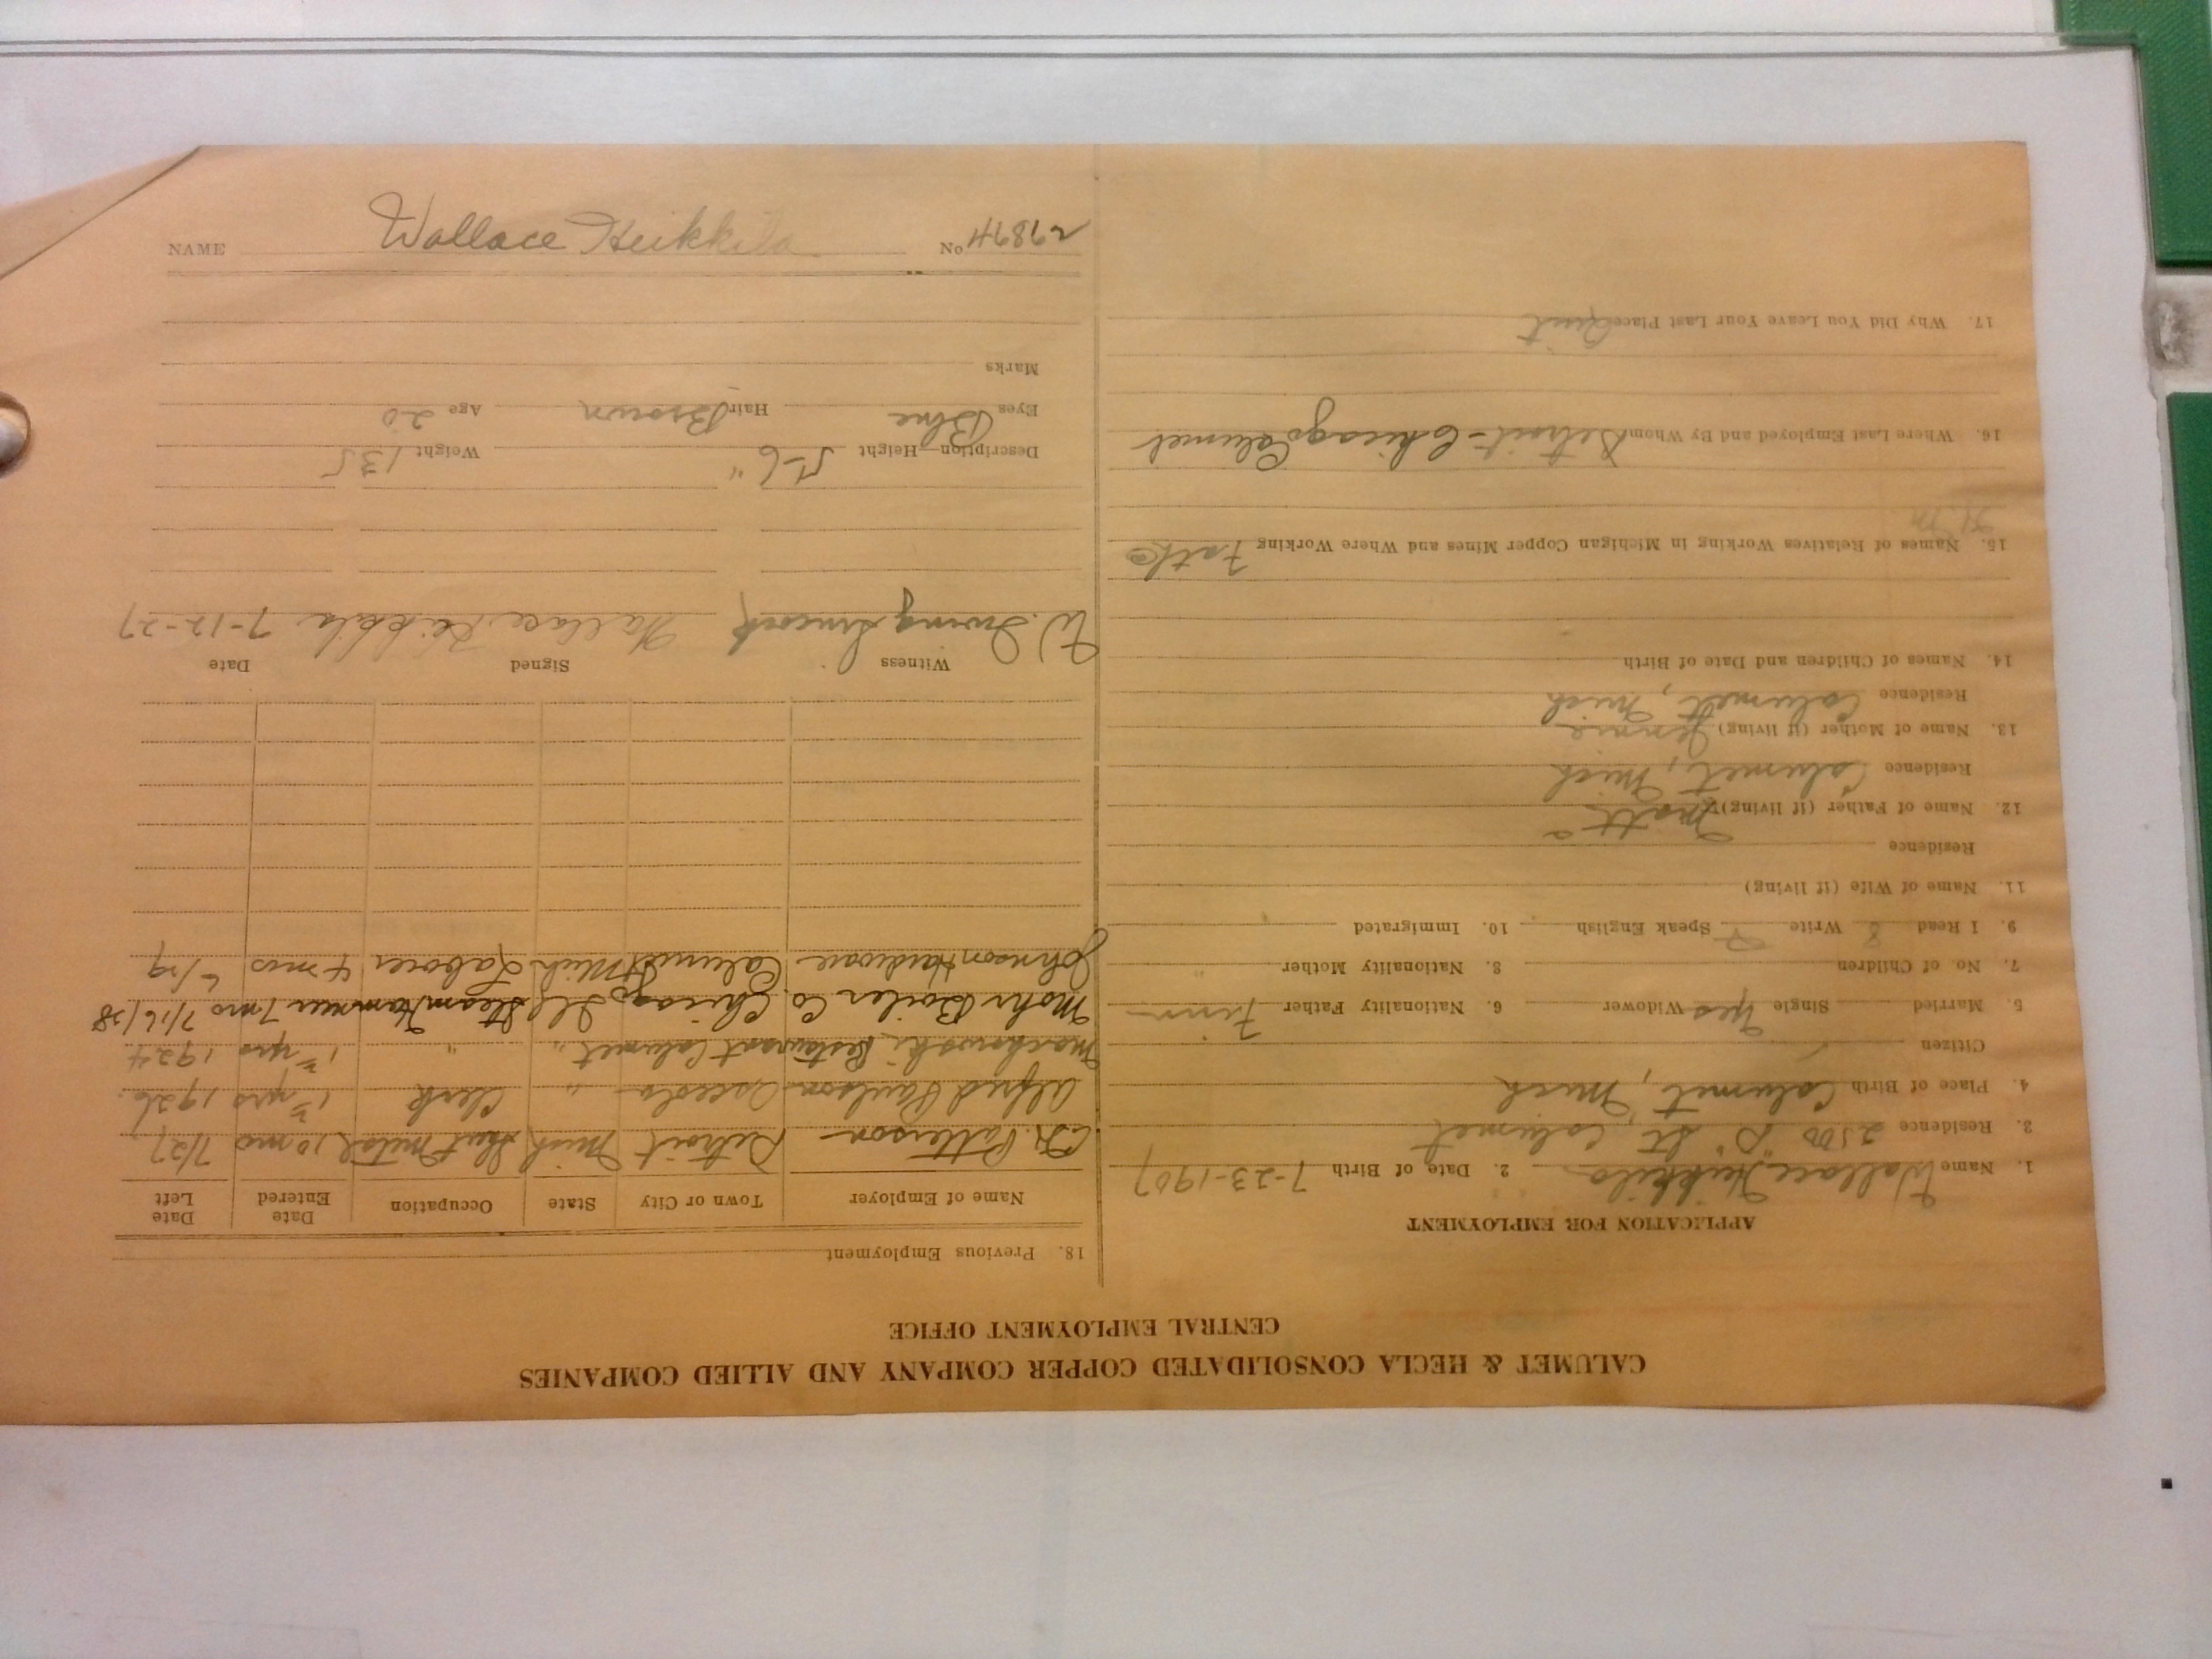 CALUMET & HECLA CONSOLIDATED COPPER COMPANY AND ALLIED COMPANIES
CENTRAL EMPLOYMENT OFFICE
APPLICATION FOR EMPLOYMENT
1. Name Wallace Heikkila 2. Date of Birth 7-23-1907
3. Residence 2500 "D" St, Calumet
4. Place of Birth Calumet, Mich
Citizen
5. Married Single Yes Widower 6. Nationality Father Finn
7. No. of Children 8. Nationality Mother "
9. I Read Write Speak English 10. Immigrated
11. Name of Wife (if living)
Residence
12. Name of Father (if living) Matt
Residence Calumet, Mich
13. Name of Mother (if living) Jennie
Residence Calumet, Mich
14. Names of Children and Date of Birth
15. Names of Relatives Working in Michigan Copper Mines and Where Working Father
16. Where Last Employed and By Whom Detroit - Chicago Calumet
17. Why Did You Leave Your Last Place Quit
18. Previous Employment
Name of Employer Town or City State Occupation Date Entered Date Left
Patterson Detroit Mich Sheet Metal 10 mo 7/27
Alfred Paulson Osceola " Clerk yrs 1926
Restaurant Calumet " " yrs 1924
Mohr Boiler Co. Chicago Ill Steam Hammer 7 mo 7/16/28
Johnson Hardware Calumet Mich Laborer 4 mos 6/29
Witness Signed Date
W. Irving Simcock Wallace Heikkila 7-12-27
Description—Height 5-6" Weight 135
Eyes Blue Hair Brown Age 20
Marks
NAME Wallace Heikkila No 27874